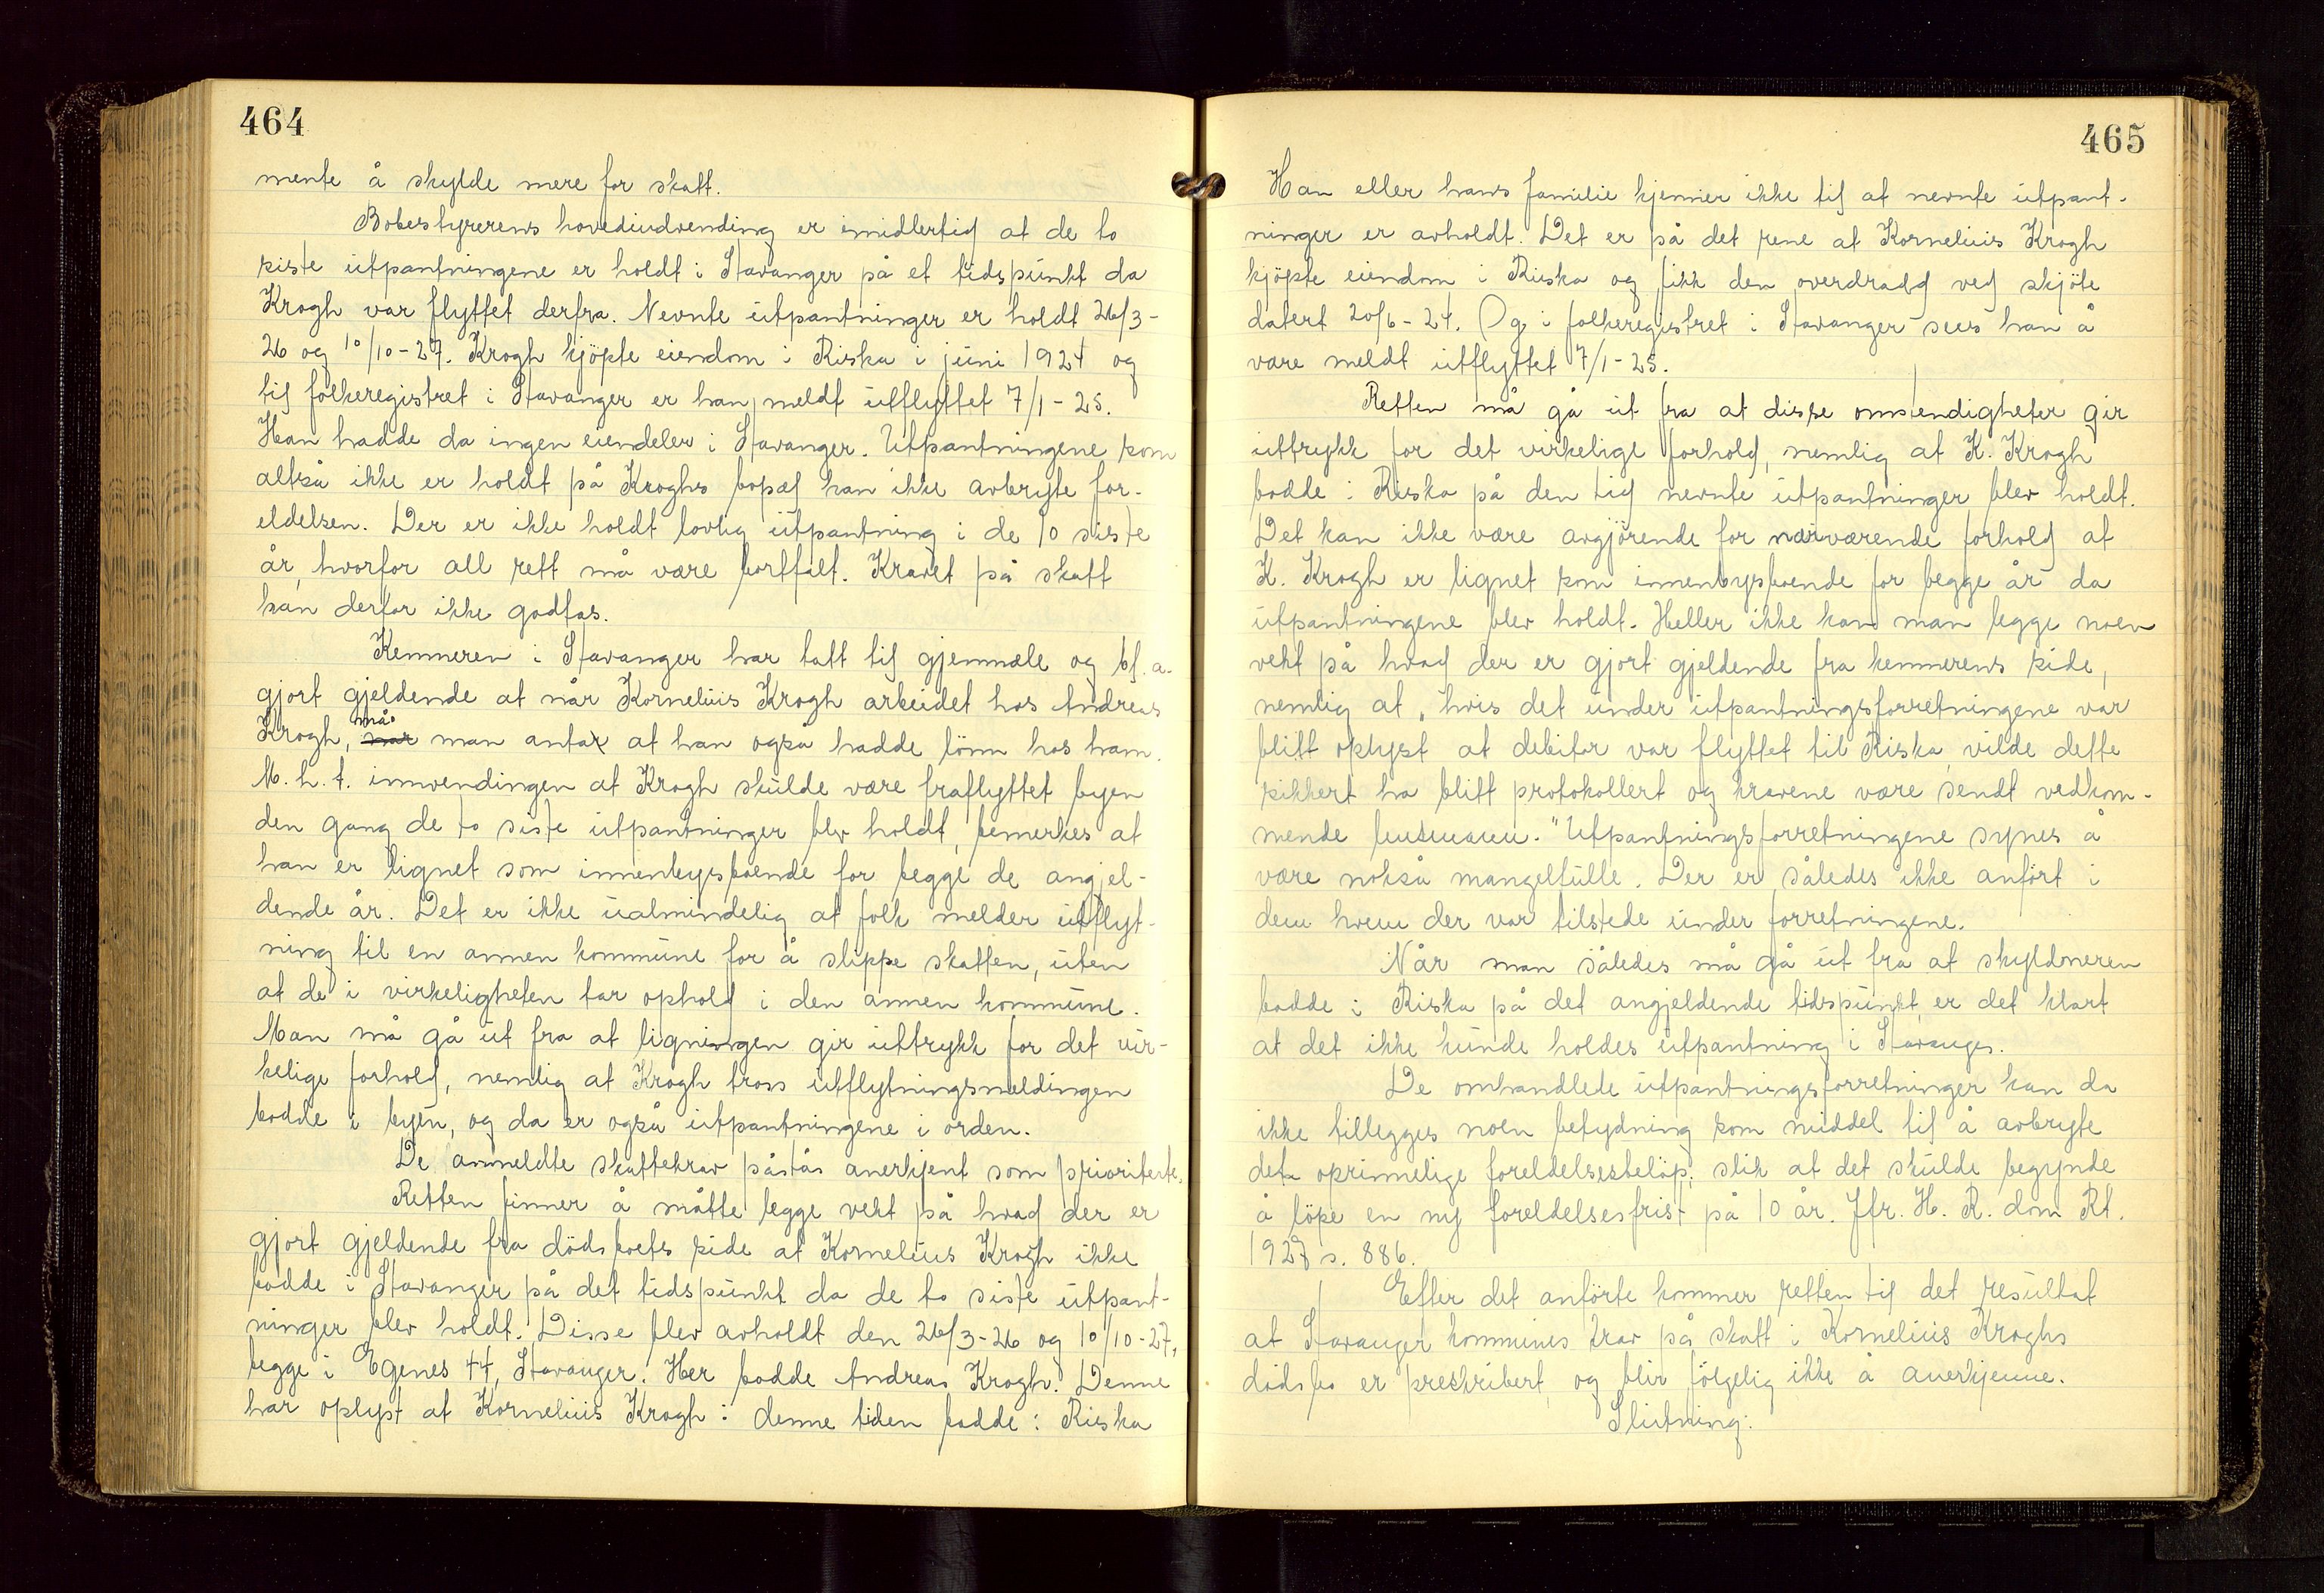 464
mente å skylde mere for skatt.
Bobestyrerens hovedindvending er imidlertid at de to
siste utpantningene er holdt i Stavanger på et tidspunkt da
Krogh var flyttet derfra. Nevnte utpantninger er holdt 26/3-
26 og 10/10-27. Krogh kjöpte eiendom i Riska i juni 1924 og
til folkeregistret i Stavanger er han meldt utflyttet 7/1-25.
Han hadde da ingen eiendeler i Stavanger. Utpantningene som
altså ikke er holdt på Kroghs bopæl kan ikke avbryte for-
eldelsen. Der er ikke holdt lovlig utpantning i de 10 siste
år, hvorfor all rett må være bortfalt. Kravet på skatt
kan derfor ikke godtas.
Kemneren i Stavanger har tatt til gjenmæle og bl.a.
gjort gjeldende at når Kornelius Krogh arbeidet hos Andreas
Krogh, må man anta at han også hadde lönn hos ham.
M.h.t. innvendingen at Krogh skulde være fraflyttet byen
den gang de to siste utpantninger blev holdt, bemerkes at
han er lignet som innenbysboende for begge de angjel-
dende år. Det er ikke ualmindelig at folk melder utflyt-
ning til en annen kommune for å slippe skatten, uten
at de i virkeligheten tar ophold i den annen kommune.
Man må gå ut fra at ligningen gir uttrykk for det vir-
kelige forhold, nemlig at Krogh tross utflytningsmeldingen
bodde i byen, og da er også utpantningene i orden.
De anmeldte skattekrav påstås anerkjent som prioriterte.
Retten finner å måtte legge vekt på hvad der er
gjort gjeldende fra dödsboets side at Kornelius Krogh ikke
bodde i Stavanger på det tidspunkt da de to siste utpant-
ninger blev holdt. Disse blev avholdt den 26/3-26 og 10/10-27,
begge i Egenes 44, Stavanger. Her bodde Andreas Krogh. Denne
har oplyst at Kornelius Krogh i denne tiden bodde i Riska
465
Han eller hans familie kjenner ikke til at nevnte utpant-
ninger er avholdt. Det er på det rene at Kornelius Krogh
kjöpte eiendom i Riska og fikk den overdradd ved skjöte
datert 20/6-24. Og i folkeregistret i Stavanger sees han å
være meldt utflyttet 7/1-25.
Retten må gå ut fra at disse omstendigheter gir
uttrykk for det virkelige forhold, nemlig at K. Krogh
bodde i Riska på den tid nevnte utpantninger blev holdt.
Det kan ikke være avgjörende for nærværende forhold at
K. Krogh er lignet som innenbysboende for begge år da
utpantningene blev holdt. Heller ikke kan man legge noen
vekt på hvad der er gjort gjeldende fra kemnerens side,
nemlig at "hvis det under utpantningsforretningene var
blitt oplyst at debitor var flyttet til Riska, vilde dette
sikkert ha blitt protokollert og kravene være sendt vedkom-
mende lensmann." Utpantningsforretningene synes å
være nokså mangelfulle. Der er således ikke anfört i
dem hvem der var tilstede under forretningene.
Når man således må gå ut fra at skyldneren
bodde i Riska på det angjeldende tidspunkt, er det klart
at det ikke kunde holdes utpantning i Stavanger.
De omhandlede utpantningsforretninger kan da
ikke tillegges noen betydning som middel til å avbryte
det oprinnelige foreldelsesbelöp, slik at det skulde begynde
å löpe en ny foreldelsesfrist på 10 år. Jfr. H. R. dom Rt.
1927 s. 886.
Efter det anförte kommer retten til det resultat
at Stavanger kommunes krav på skatt i Kornelius Kroghs
dödsbo er preskribert, og blir fölgelig ikke å anerkjenne.
Slutning: